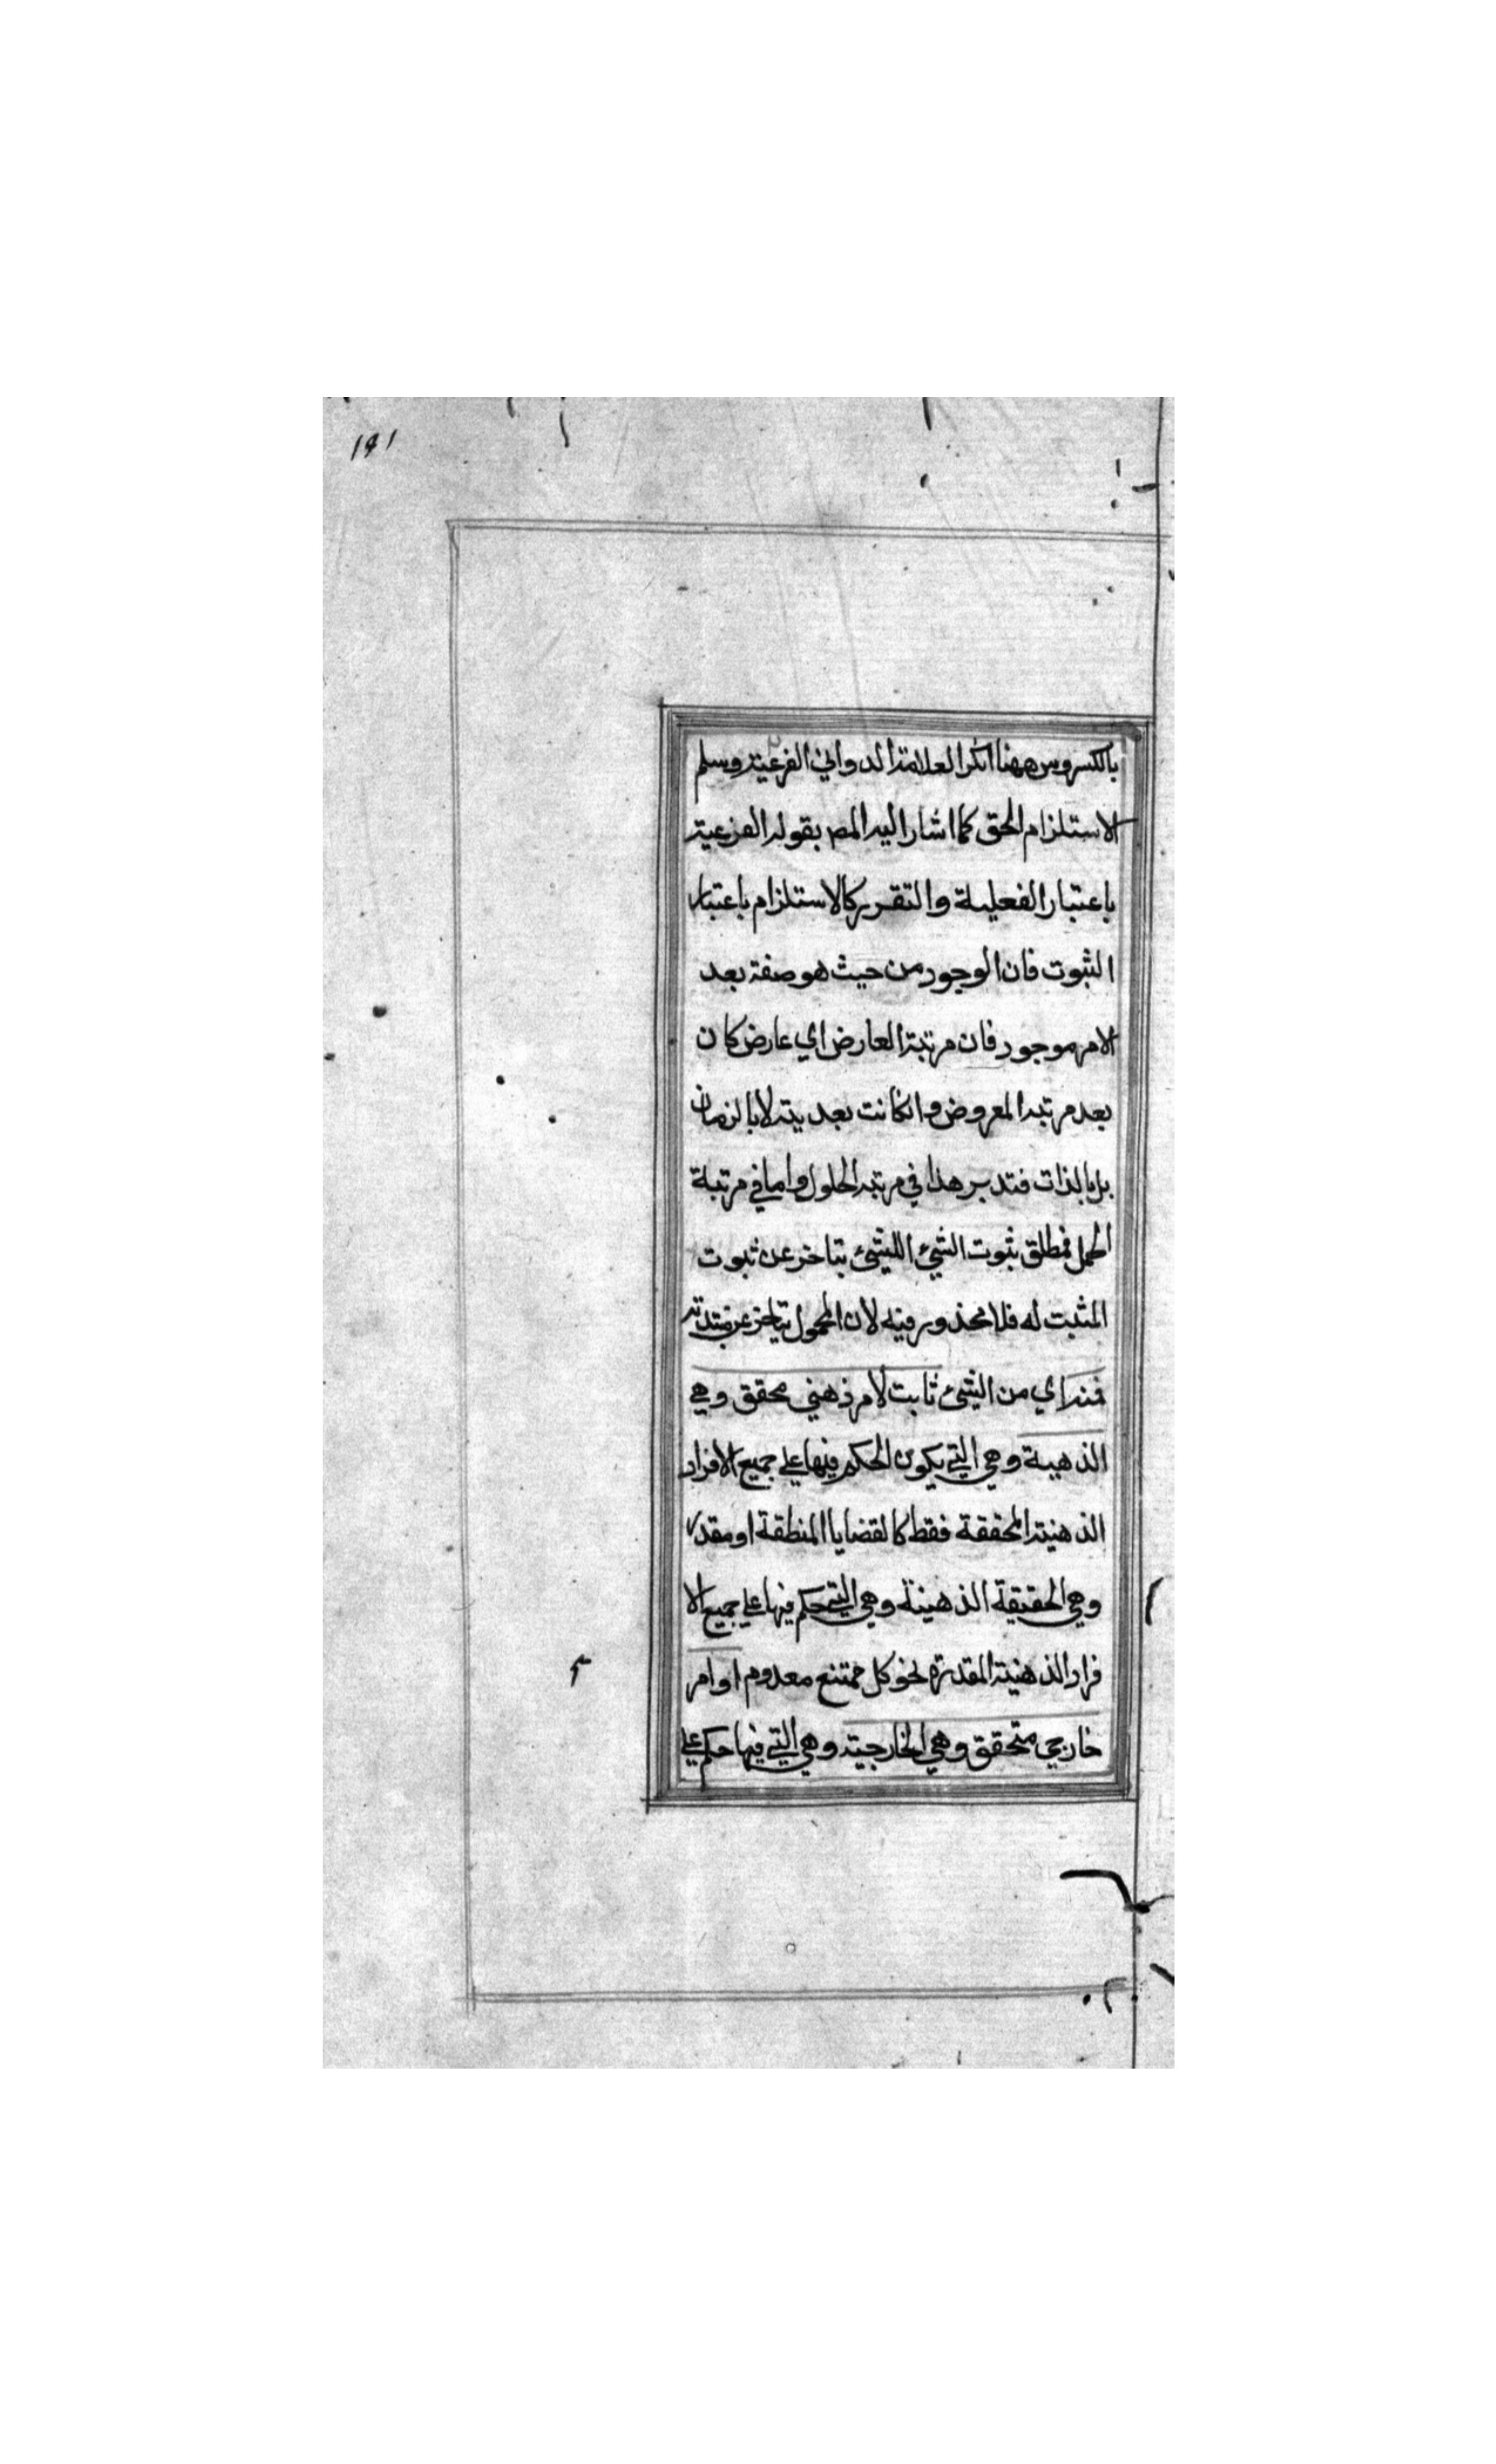 ١٩١
بالكسر ومن ههنا انكر العلامة الدواني الفرعية وسلم
الاستلزام الحق كما اشار اليه المص بقوله الفرعية
باعتبار الفعلية والتقرير كالاستلزام باعتبار
الثبوت فان الوجود من حيث هو صفة بعد
الامر موجود فان مرتبة العارض اي عارض كان
بعد مرتبة المعروض وانكانت بعدية لا بالزمان
بل بالذات فتدبر هذا في مرتبة الحلول واما في مرتبة
الحمل فمطلق ثبوت الشيئ الليشئ يتاخر عن ثبوت
المثبت له فلا محذور فيه لان المحمول يتاخر عن
فمنه اي من الشيئ ثابت لامر ذهني محقق وهي
الذهبية وهي التي يكون الحكم فيها على جميع الافراد
الذهنية المحققة فقط كالقضايا المنطقة او مقدر
وهي الحقيقة الذهينة وهي التي حكم فيها على جميع الا
فراد الذهنية المقدرة نحو كل ممتنع معدوم او امر
خارجي متحقق وهي الخارجية وهي التي فيها حكم على